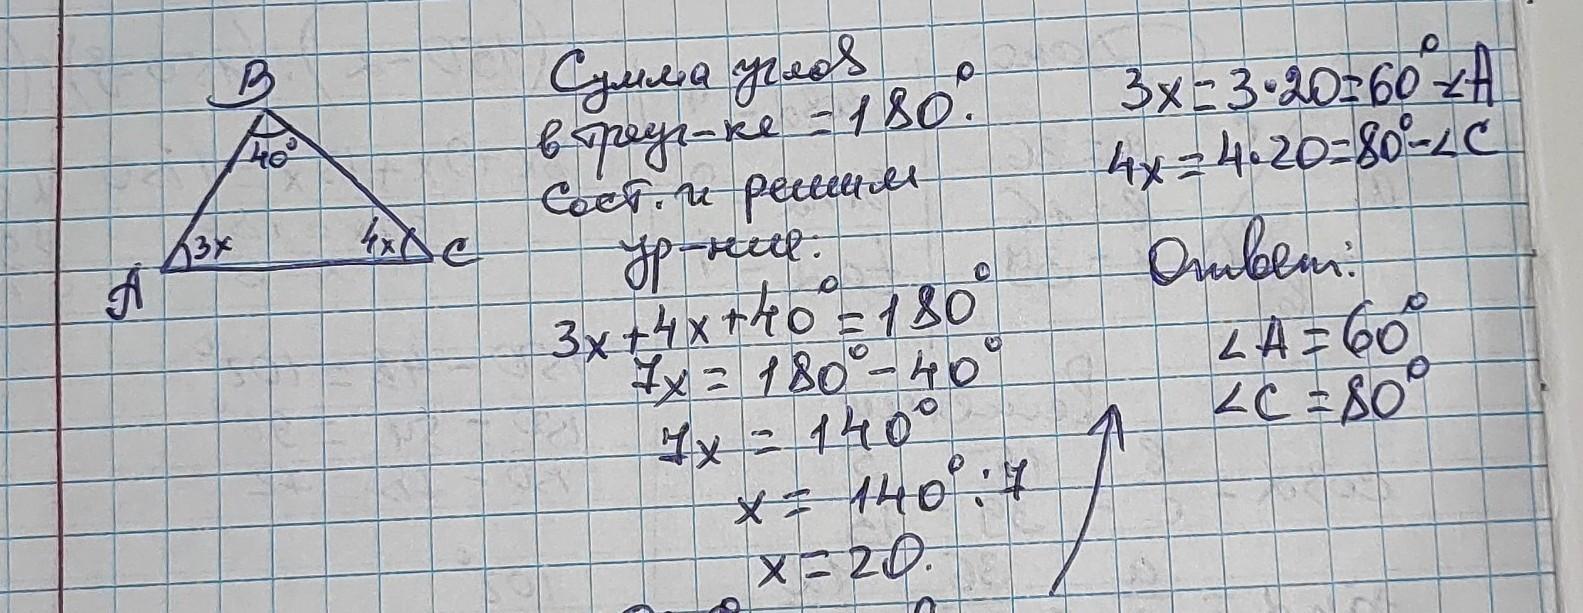 B
40°
3x
4x
C
A
Сумма углов
в треуг-ке = 180°.
Сост. и решим
ур-ние:
3x+4x+40°=180°
7x = 180°-40°
7x = 140°
x = 140°:7
x = 20.
3x=3·20=60°-∠A
4x=4·20=80°-∠C
Ответ:
∠A=60°
∠C=80°